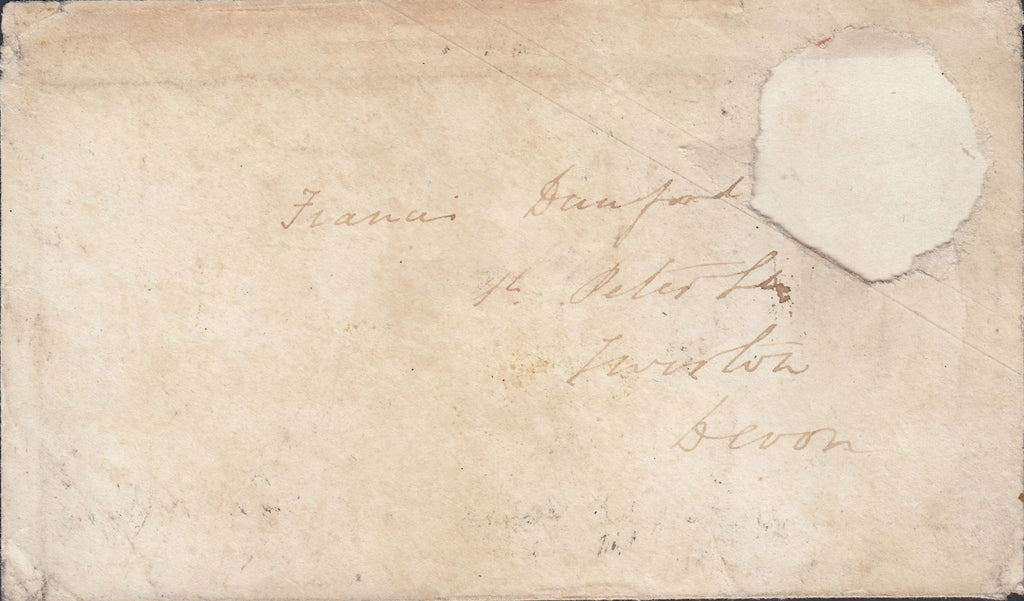 Francis Dunsford
St. Peter St
Tiverton
Devon